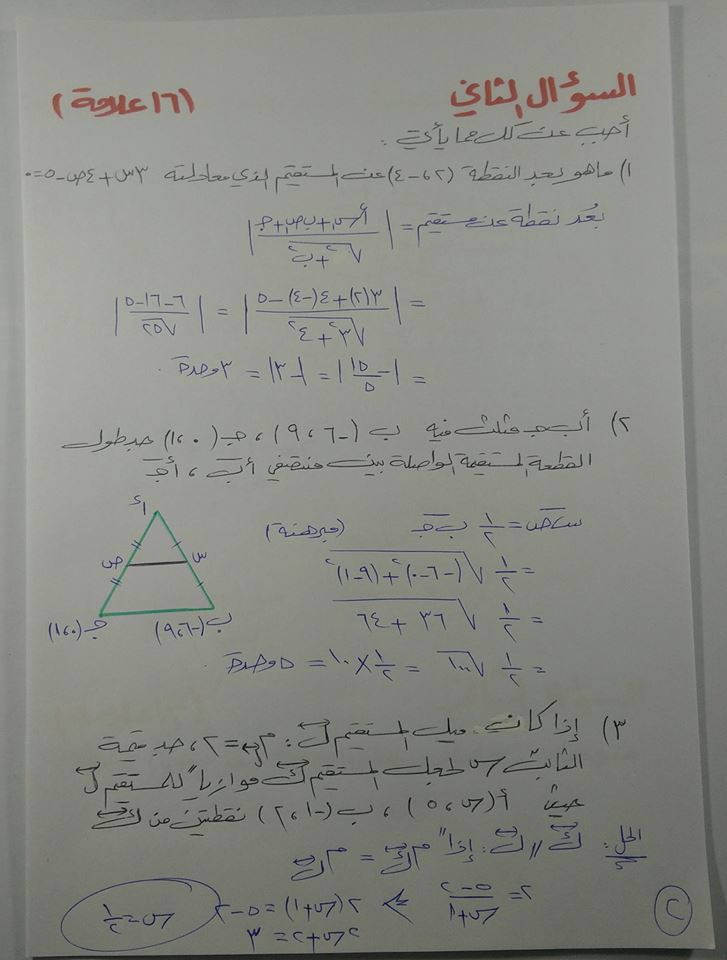 السؤال الثاني (١٦ علامة)
أجب عن كل مما يأتي :
١) ما هو بعد النقطة (٢ ، -٤) عن المستقيم الذي معادلته ٣س + ٤ص - ٥ = ٠
بُعد نقطة عن مستقيم = | أس + ب ص + جـ / √أ² + ب² |
= | ٣(٢) + ٤(-٤) - ٥ / √٣² + ٤² | = | ٦ - ١٦ - ٥ / √٢٥ |
= | -١٥ / ٥ | = | -٣ | = ٣ وحدة .
٢) أ ب جـ مثلث فيه ب (-٦ ، ٩) ، جـ (٠ ، ١) جد طول
القطعة المستقيمة الواصلة بين منتصفي أب ، أجـ
س ص = ١/٢ ب جـ (مبرهنة)
= ١/٢ √(-٦ - ٠)² + (٩ - ١)²
= ١/٢ √٣٦ + ٦٤
= ١/٢ √١٠٠ = ١/٢ × ١٠ = ٥ وحدة
أ
س
ص
ب (-٦ ، ٩)
جـ (٠ ، ١)
٣) إذا كان ميل المستقيم ل : م ل = ٢ ، جد قيمة
الثابت س لجعل المستقيم ك موازياً للمستقيم ل
حيث أ (س ، ٥) ، ب (-١ ، ٢) نقطتين من ك
الحل : ك // ل : إذاً م ك = م ل
٢ = ٥ - ٢ / س + ١ ⇐ ٢(س + ١) = ٥ - ٢
٢س + ٢ = ٣
س = ١/٢
٢